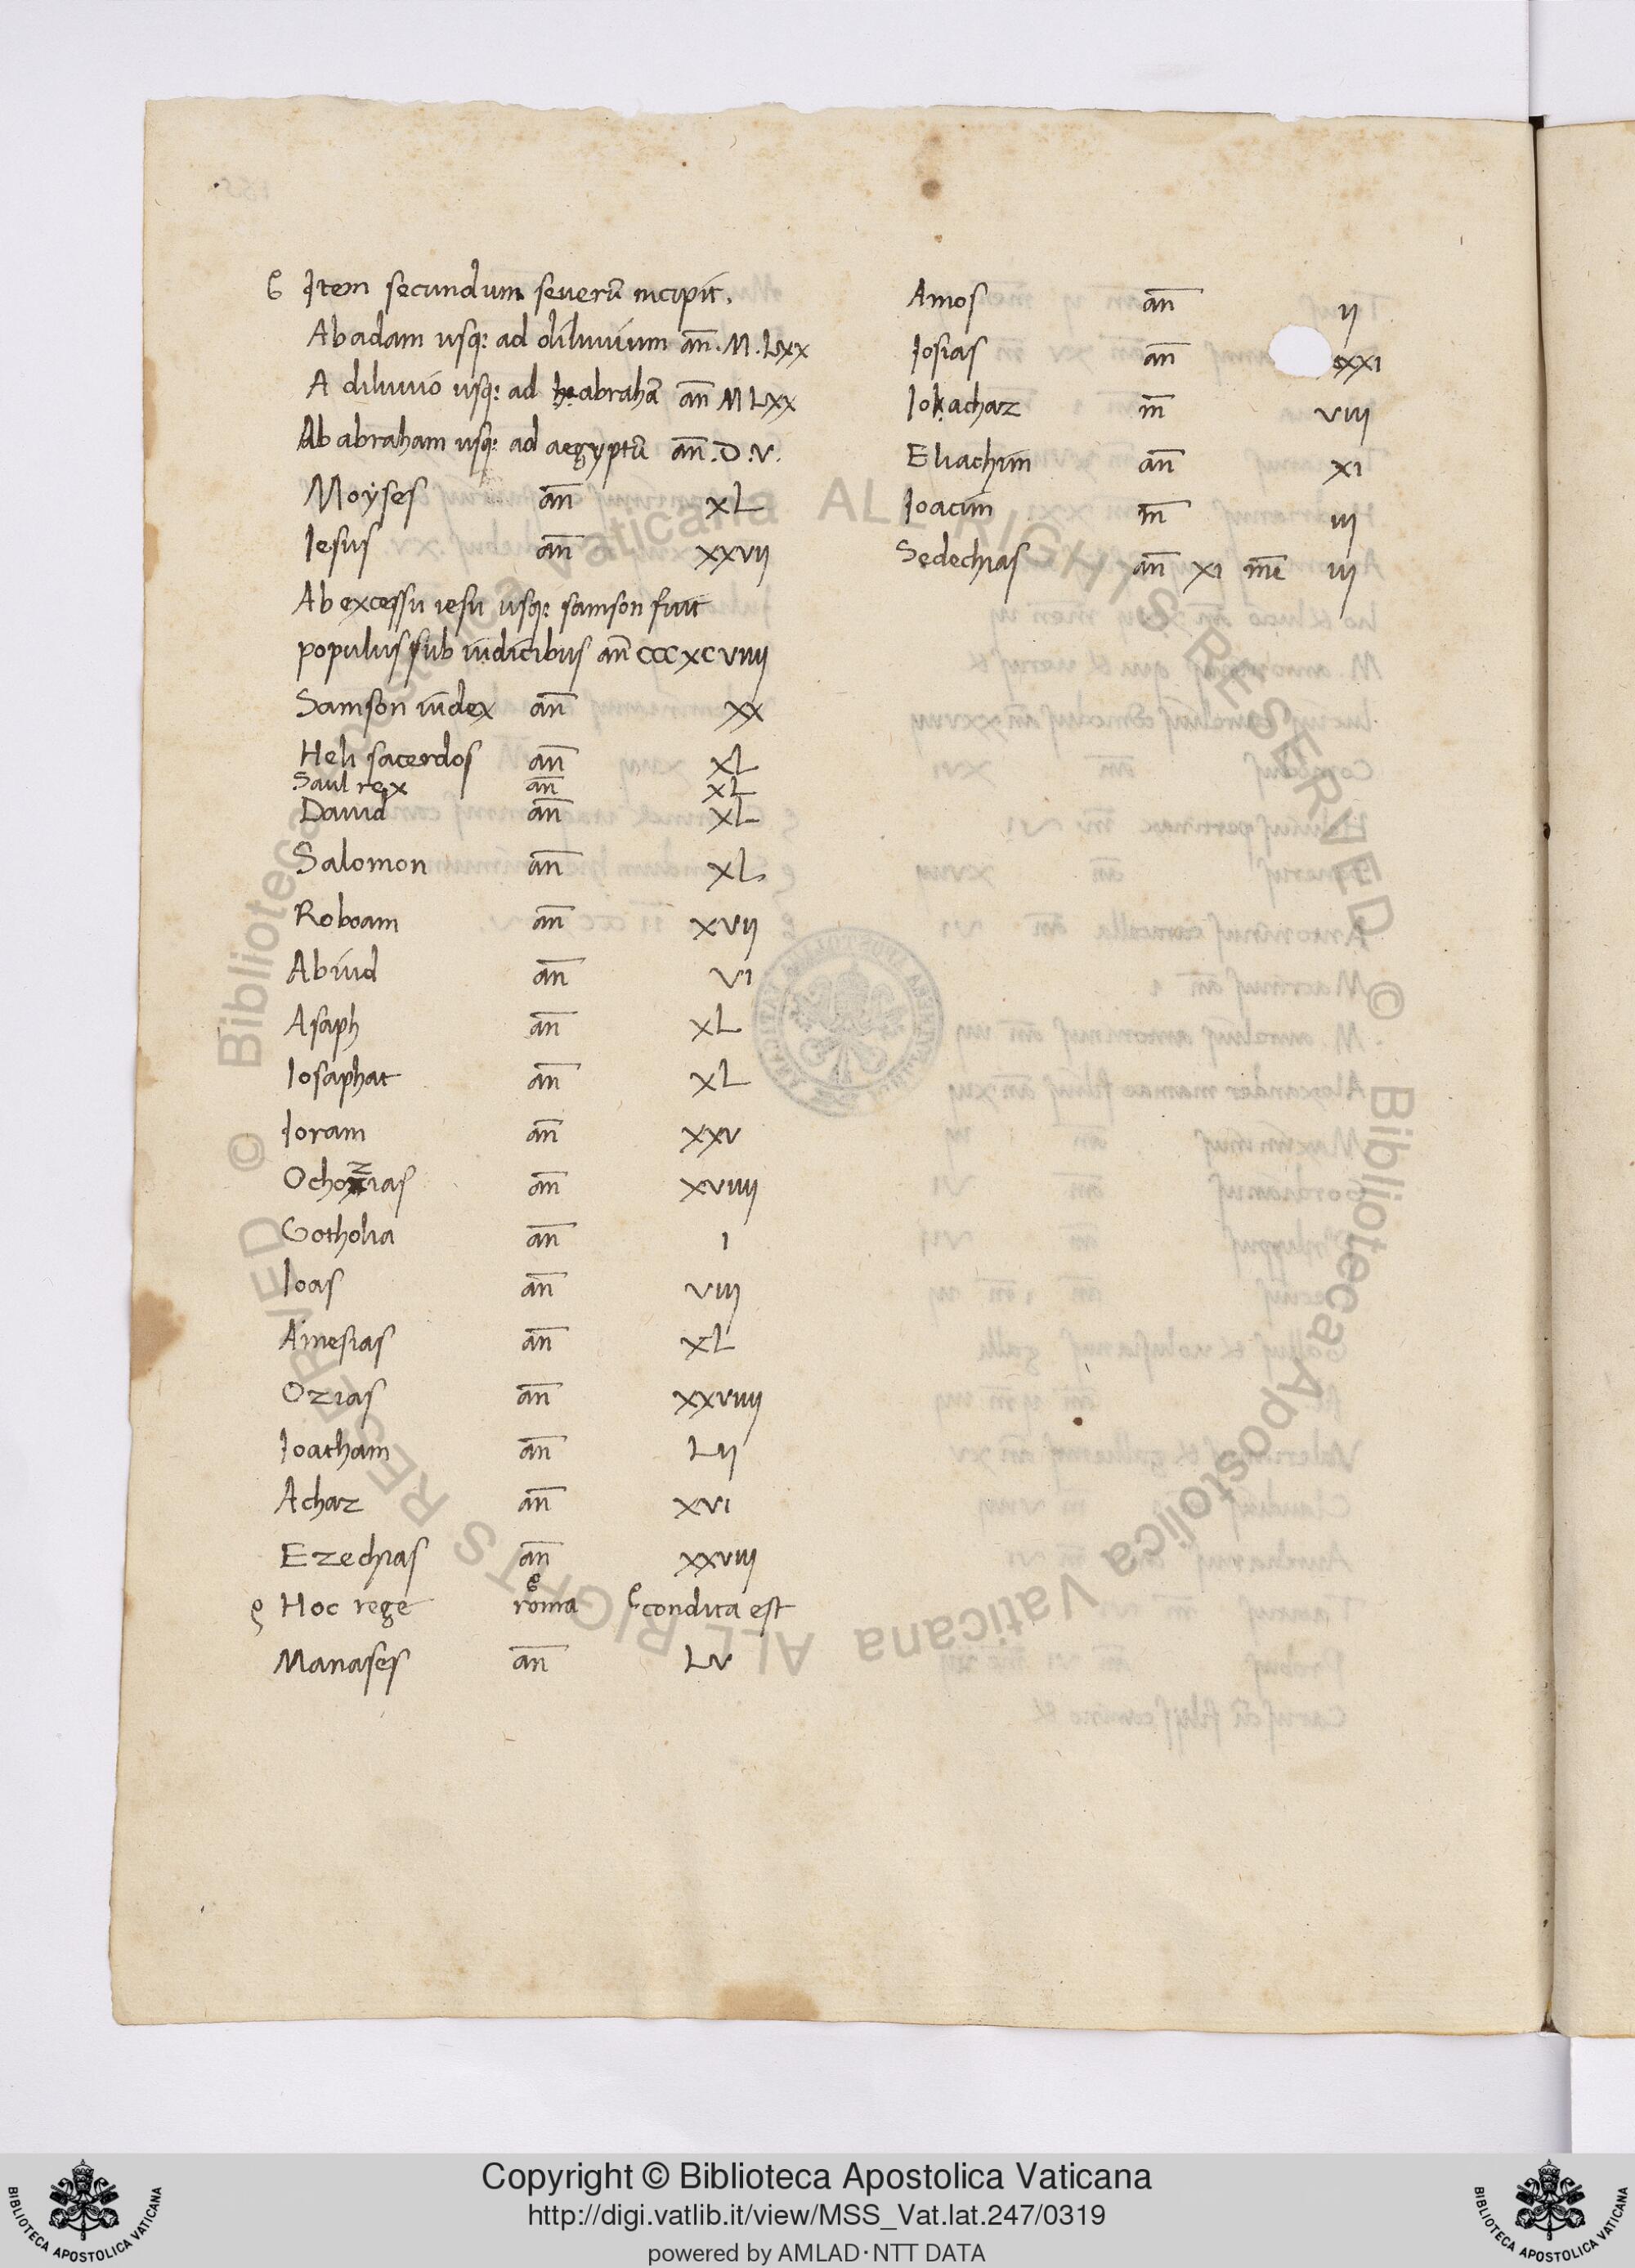 Item secundum seuerū incipit.
Ab adam usq: ad diluuium an̄. M. Lxx
A diluuio usq: ad abrahā an̄ M Lxx
Ab abraham usq: ad aegyptū an̄. D. V.
Moyses an̄ xL
Iesus an̄ xxvij
Ab excessu iesu usq: samson fuit
populus sub iudicibus an̄ CCCxCviiij
Samson iudex an̄ xx
Heli sacerdos an̄ xL
Saul rex an̄ xL
Dauid an̄ xL
Salomon an̄ xL
Roboam an̄ xvij
Abiud an̄ vi
Asaph an̄ xL
Iosaphat an̄ xL
Ioram an̄ xxv
Ochozias an̄ xviiij
Gotholia an̄ i
Ioas an̄ viij
Amesias an̄ xL
Ozias an̄ xxviiij
Ioatham an̄ Lij
Achaz an̄ xvi
Ezechias an̄ xxviij
Hoc rege roma condita est
Manases an̄ Lv
Amos an̄ ij
Iosias an̄ xxxi
Iohachaz m̄ viij
Eliachim an̄ xi
Ioacim m̄ iij
Sedechias an̄ xi m̄e iij
© Biblioteca Apostolica Vaticana ALL RIGHTS RESERVED
© Biblioteca Apostolica Vaticana ALL RIGHTS RESERVED
Copyright © Biblioteca Apostolica Vaticana
http://digi.vatlib.it/view/MSS_Vat.lat.247/0319
powered by AMLAD·NTT DATA
BIBLIOTECA APOSTOLICA VATICANA
BIBLIOTECA APOSTOLICA VATICANA